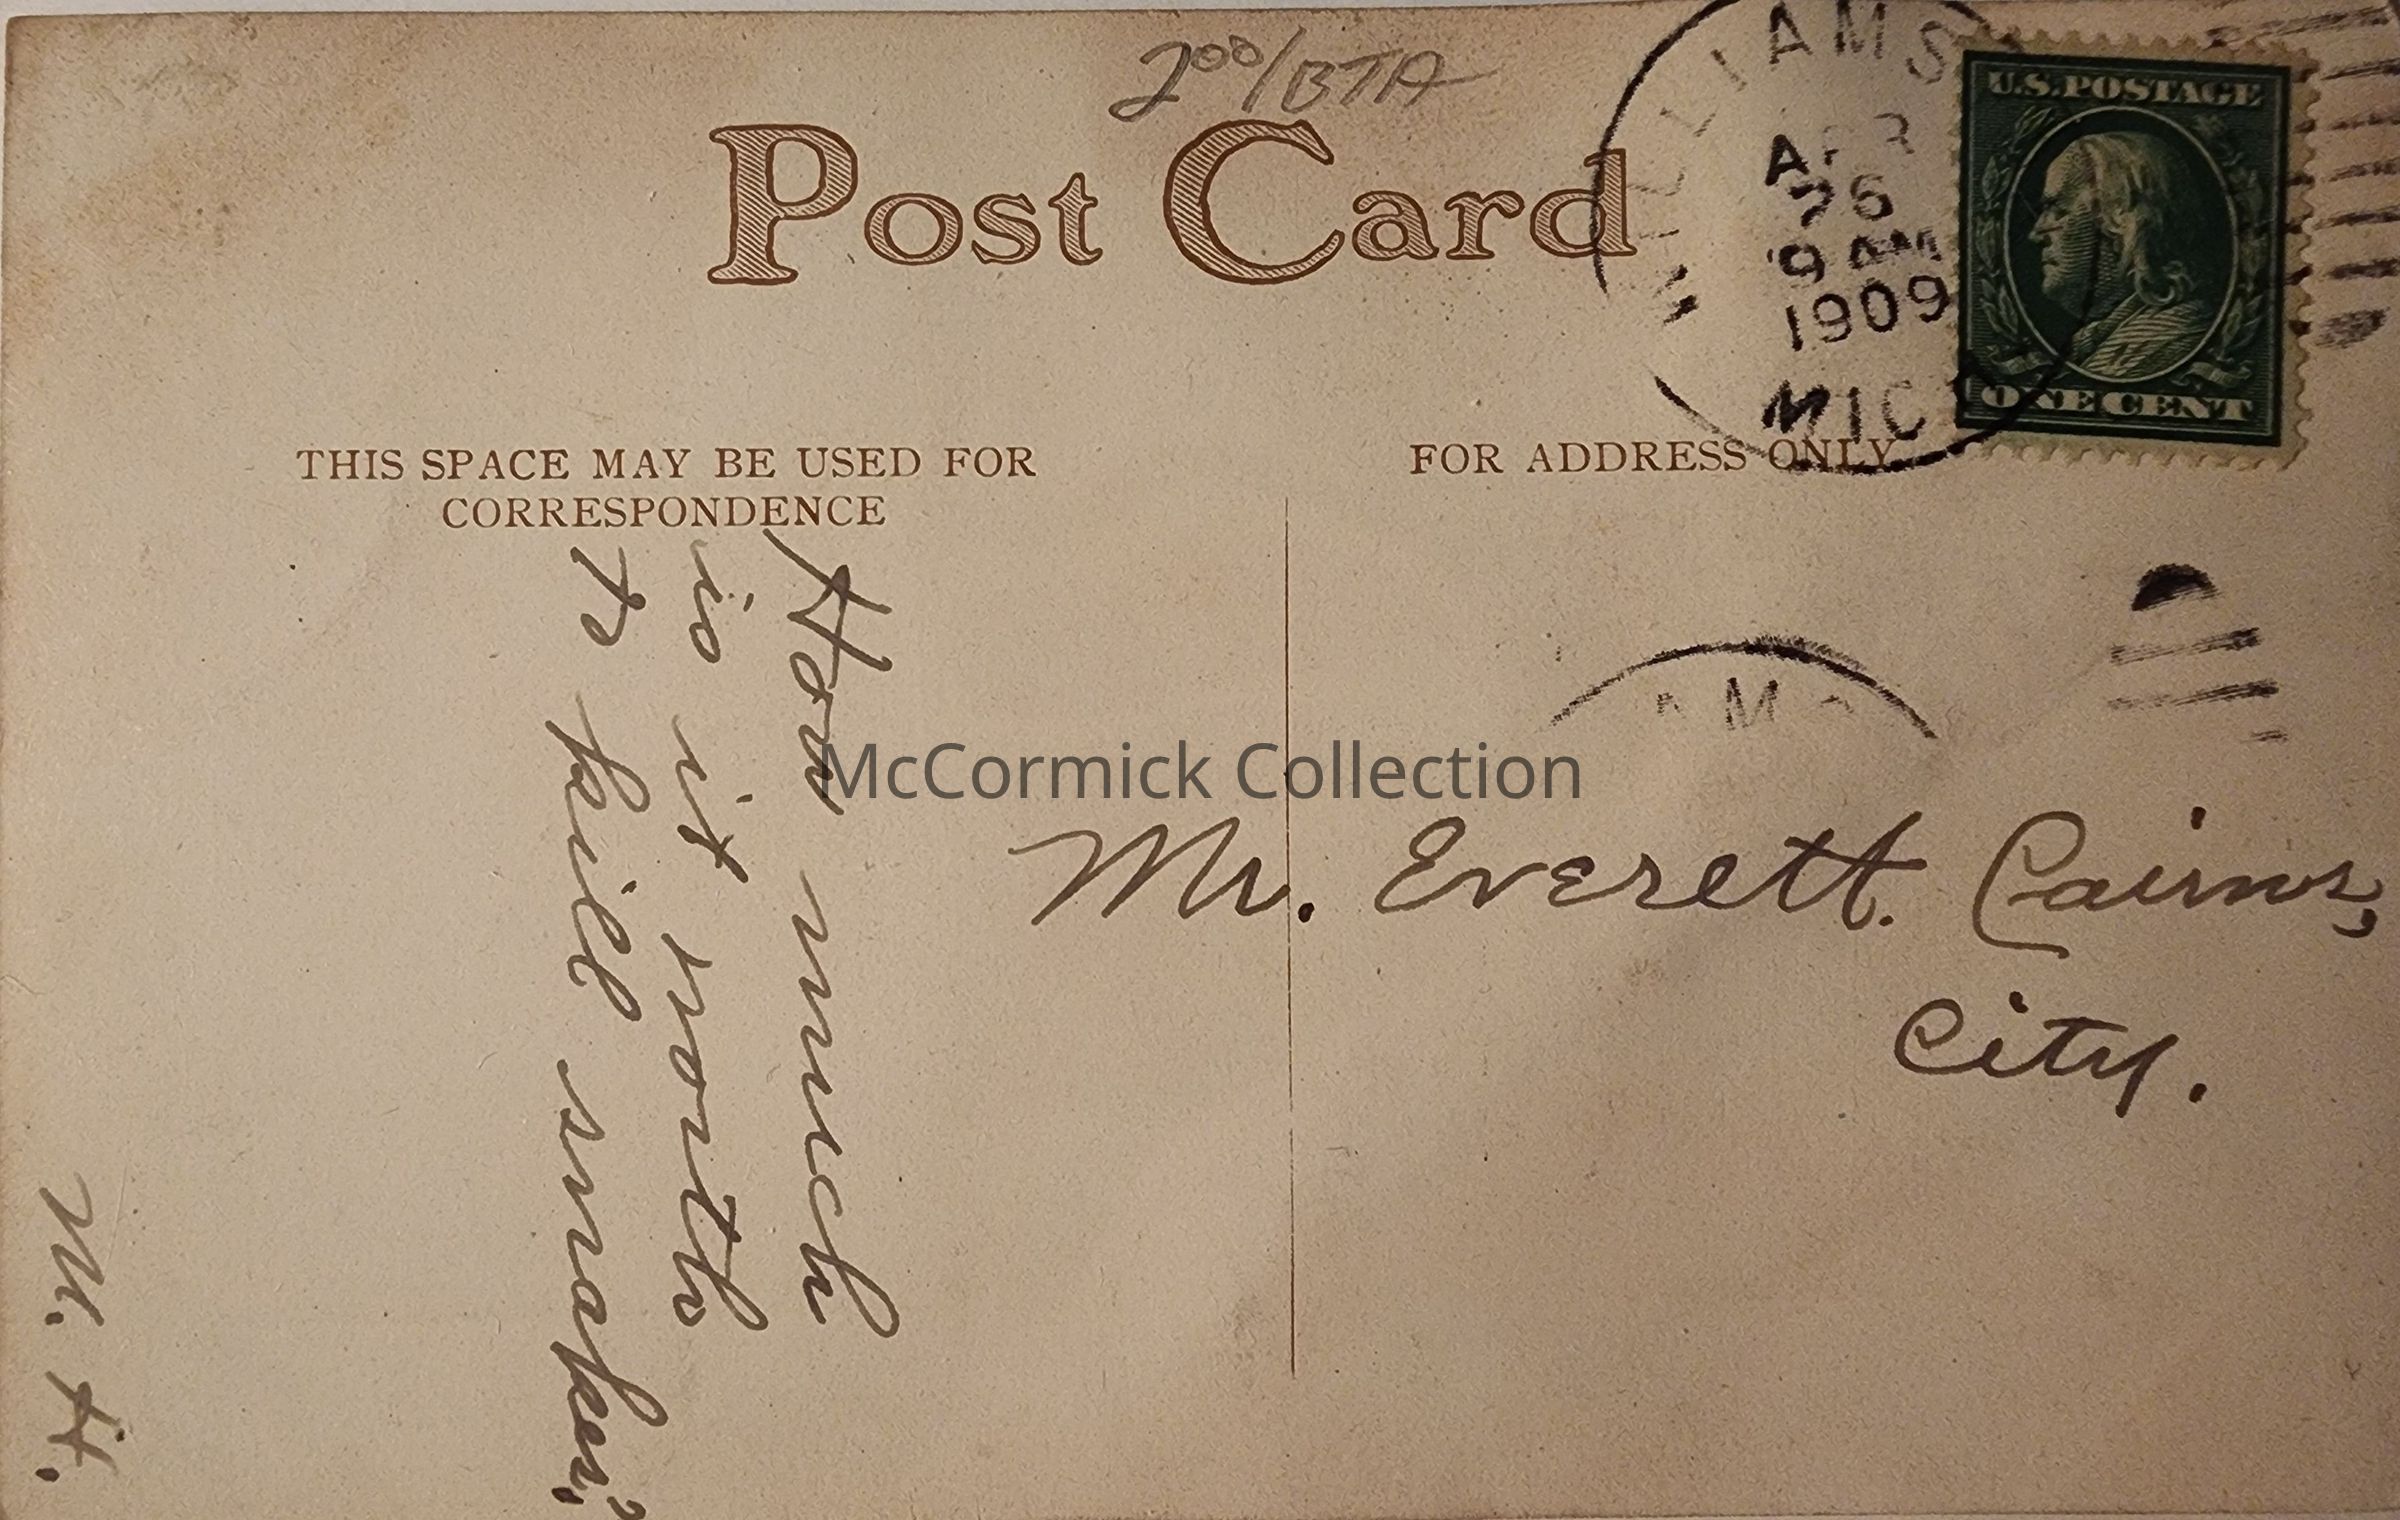 2⁰⁰/BTA
Post Card
WILLIAMS
APR
26
9 AM
1909
MICH
U.S. POSTAGE
ONE CENT
THIS SPACE MAY BE USED FOR
CORRESPONDENCE
FOR ADDRESS ONLY
How much
is it worth
to kill snakes?
M. H.
AMS
McCormick Collection
Mr. Everett Cairns,
City.